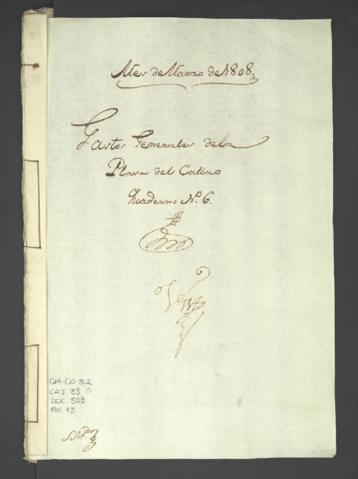 Mes de Marzo de 1808.
Gastos Generales de la
Plaza del Callao
Quaderno N.o 6.
GM-CO 3.2
CAJ 35
DOC 503
Fol 13